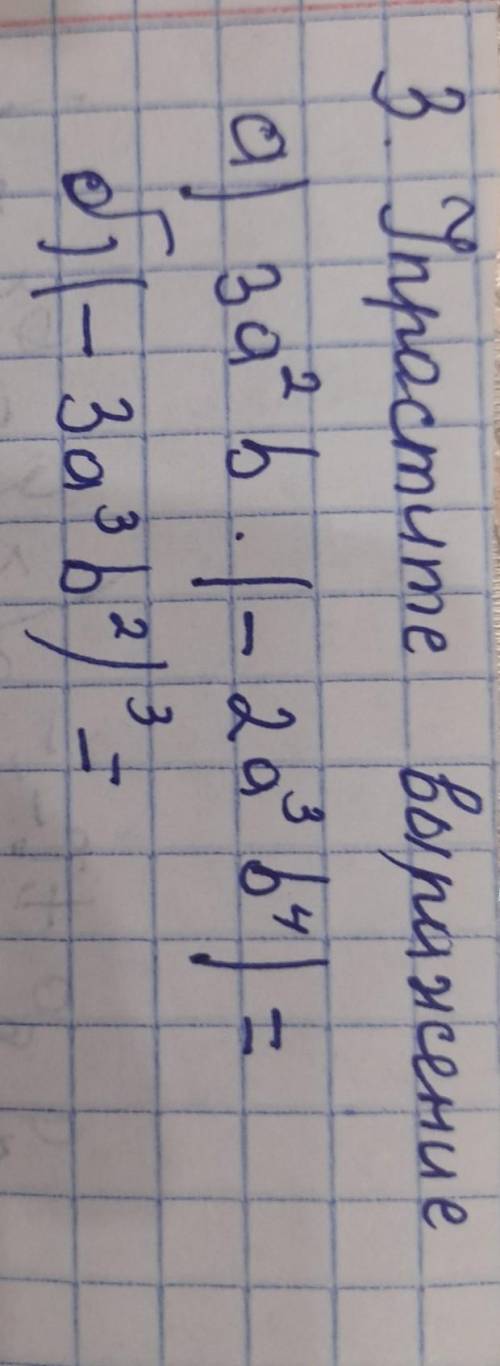 3. Упрастите выражение
а) 3a²b · (- 2a³b⁴) =
б) (- 3a³b²)³ =